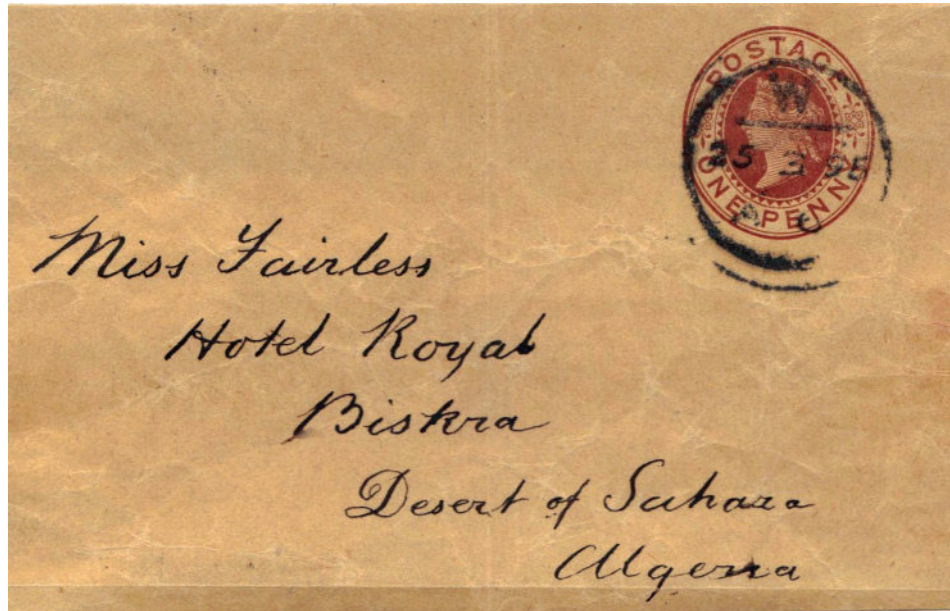 POSTAGE
ONE PENNY
W
25 3 95
Miss Fairless
Hotel Royal
Biskra
Desert of Sahara
Algeria